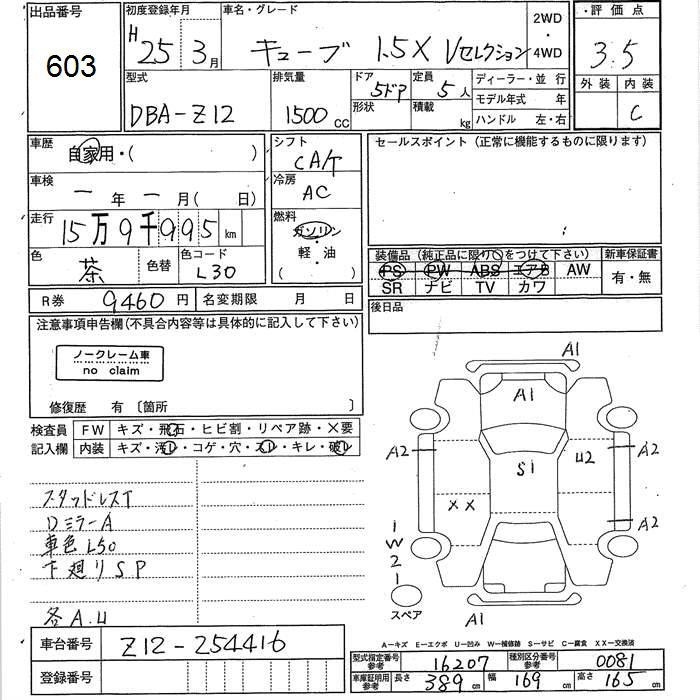 出品番号
603
初度登録年月
H 25 3月
車名・グレード
キューブ 1.5X Vセレクション
2WD
・
4WD
評価点
3.5
外装 内装
C
型式
DBA-Z12
排気量
1500 CC
ドア 5ドア
形状
定員 5人
積載 kg
ディーラー・並行
モデル年式 年
ハンドル 左・右
車歴
自家用・( )
シフト
CA/T
セールスポイント (正常に機能するものに限ります)
車検
一年一月( 日)
冷房
AC
走行
15万9千995km
燃料
ガソリン
・
軽・油
( )
色
茶
色替
色コード
L30
装備品 (純正品に限り○をつけて下さい)
PS PW ABS エアB AW
SR ナビ TV カワ
新車保証書
有・無
R券 9460円 名変期限 月 日
後日品
注意事項申告欄(不具合内容等は具体的に記入して下さい)
ノークレーム車
no claim
修復歴 有 〔箇所 〕
検査員
記入欄
FW キズ・飛石・ヒビ割・リペア跡・×要
内装 キズ・汚レ・コゲ・穴・スレ・キレ・破レ
スタッドレスT
Dミラー A
車色 L50
下廻りSP
各A.U
A1
A1
A2
S1
U2
A2
XX
A2
1
W
2
1
スペア
A1
A—キズ E—エクボ U—凹み W—補修跡 S—サビ C—腐食 XX—交換済
車台番号 Z12-254416
登録番号
型式指定番号
参考
16207
種別区分番号
参考
0081
車庫証明用
参考
長さ 389cm 幅 169cm 高さ 165cm